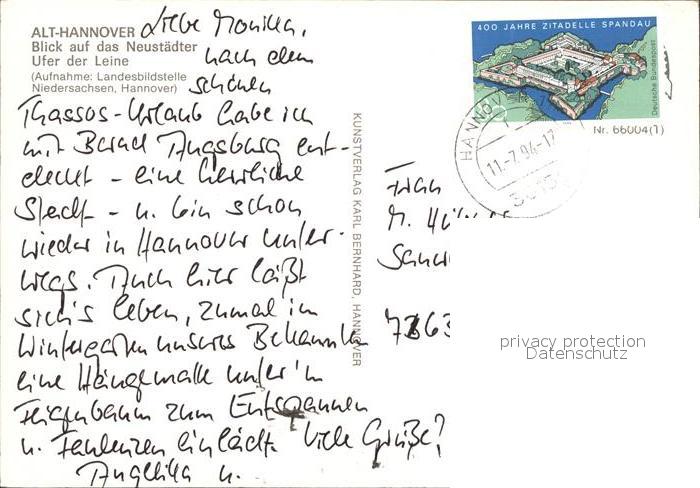 ALT-HANNOVER
Blick auf das Neustädter
Ufer der Leine
(Aufnahme: Landesbildstelle
Niedersachsen, Hannover)
Liebe Monika,
nach dem
schönen
Thassos-Urlaub habe ich
mit Bernd Augsburg ent-
deckt - eine herrliche
Stadt - u. bin schon
wieder in Hannover unter-
wegs. Auch hier läßt
sich's leben, zumal im
Wintergarten unseres Bekannten
eine Hängematte unter'm
Feigenbaum zum Entspannen
u. Faulenzen einlädt. Viele Grüße
Angelika u.
KUNSTVERLAG KARL BERNHARD, HANNOVER
400 JAHRE ZITADELLE SPANDAU
Deutsche Bundespost
Nr. 66004(1)
HANNOV
11.-7.94-17
Frau
M.
privacy protection
Datenschutz